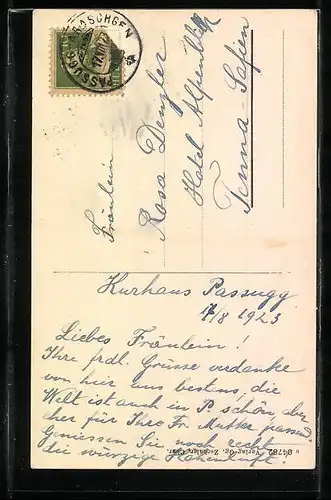 PASSUGG-ARASCHGEN
Fräulein
Rosa Dengler
Hotel Alpenblick
Tenna-Safien
Kurhaus Passugg
17/8 1923
Liebes Fräulein!
Ihre frdl. Grüsse verdanke
von hier aus bestens, die
Welt ist auch in P. schön, aber
eher für Ihre Fr. Mutter passend.
Geniessen Sie noch recht
die würzige Höhenluft!
04782 Verlag